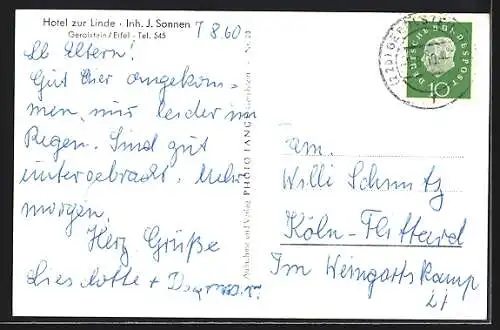 Hotel zur Linde · Inh. J. Sonnen
Gerolstein / Eifel - Tel. 545
7 8.60
Lb Eltern!
Gut hier angekom-
men, nur leider im
Regen. Sind gut
untergebracht. Mehr
morgen.
Herz. Grüße
Lieslotte + Dagmar
Aufnahme und Verlag PHOTO LANG Gerolstein - Nr. 23
DEUTSCHE BUNDESPOST
10
An.
Willi Schmitz
Köln-Flittard
Im Weingartskamp